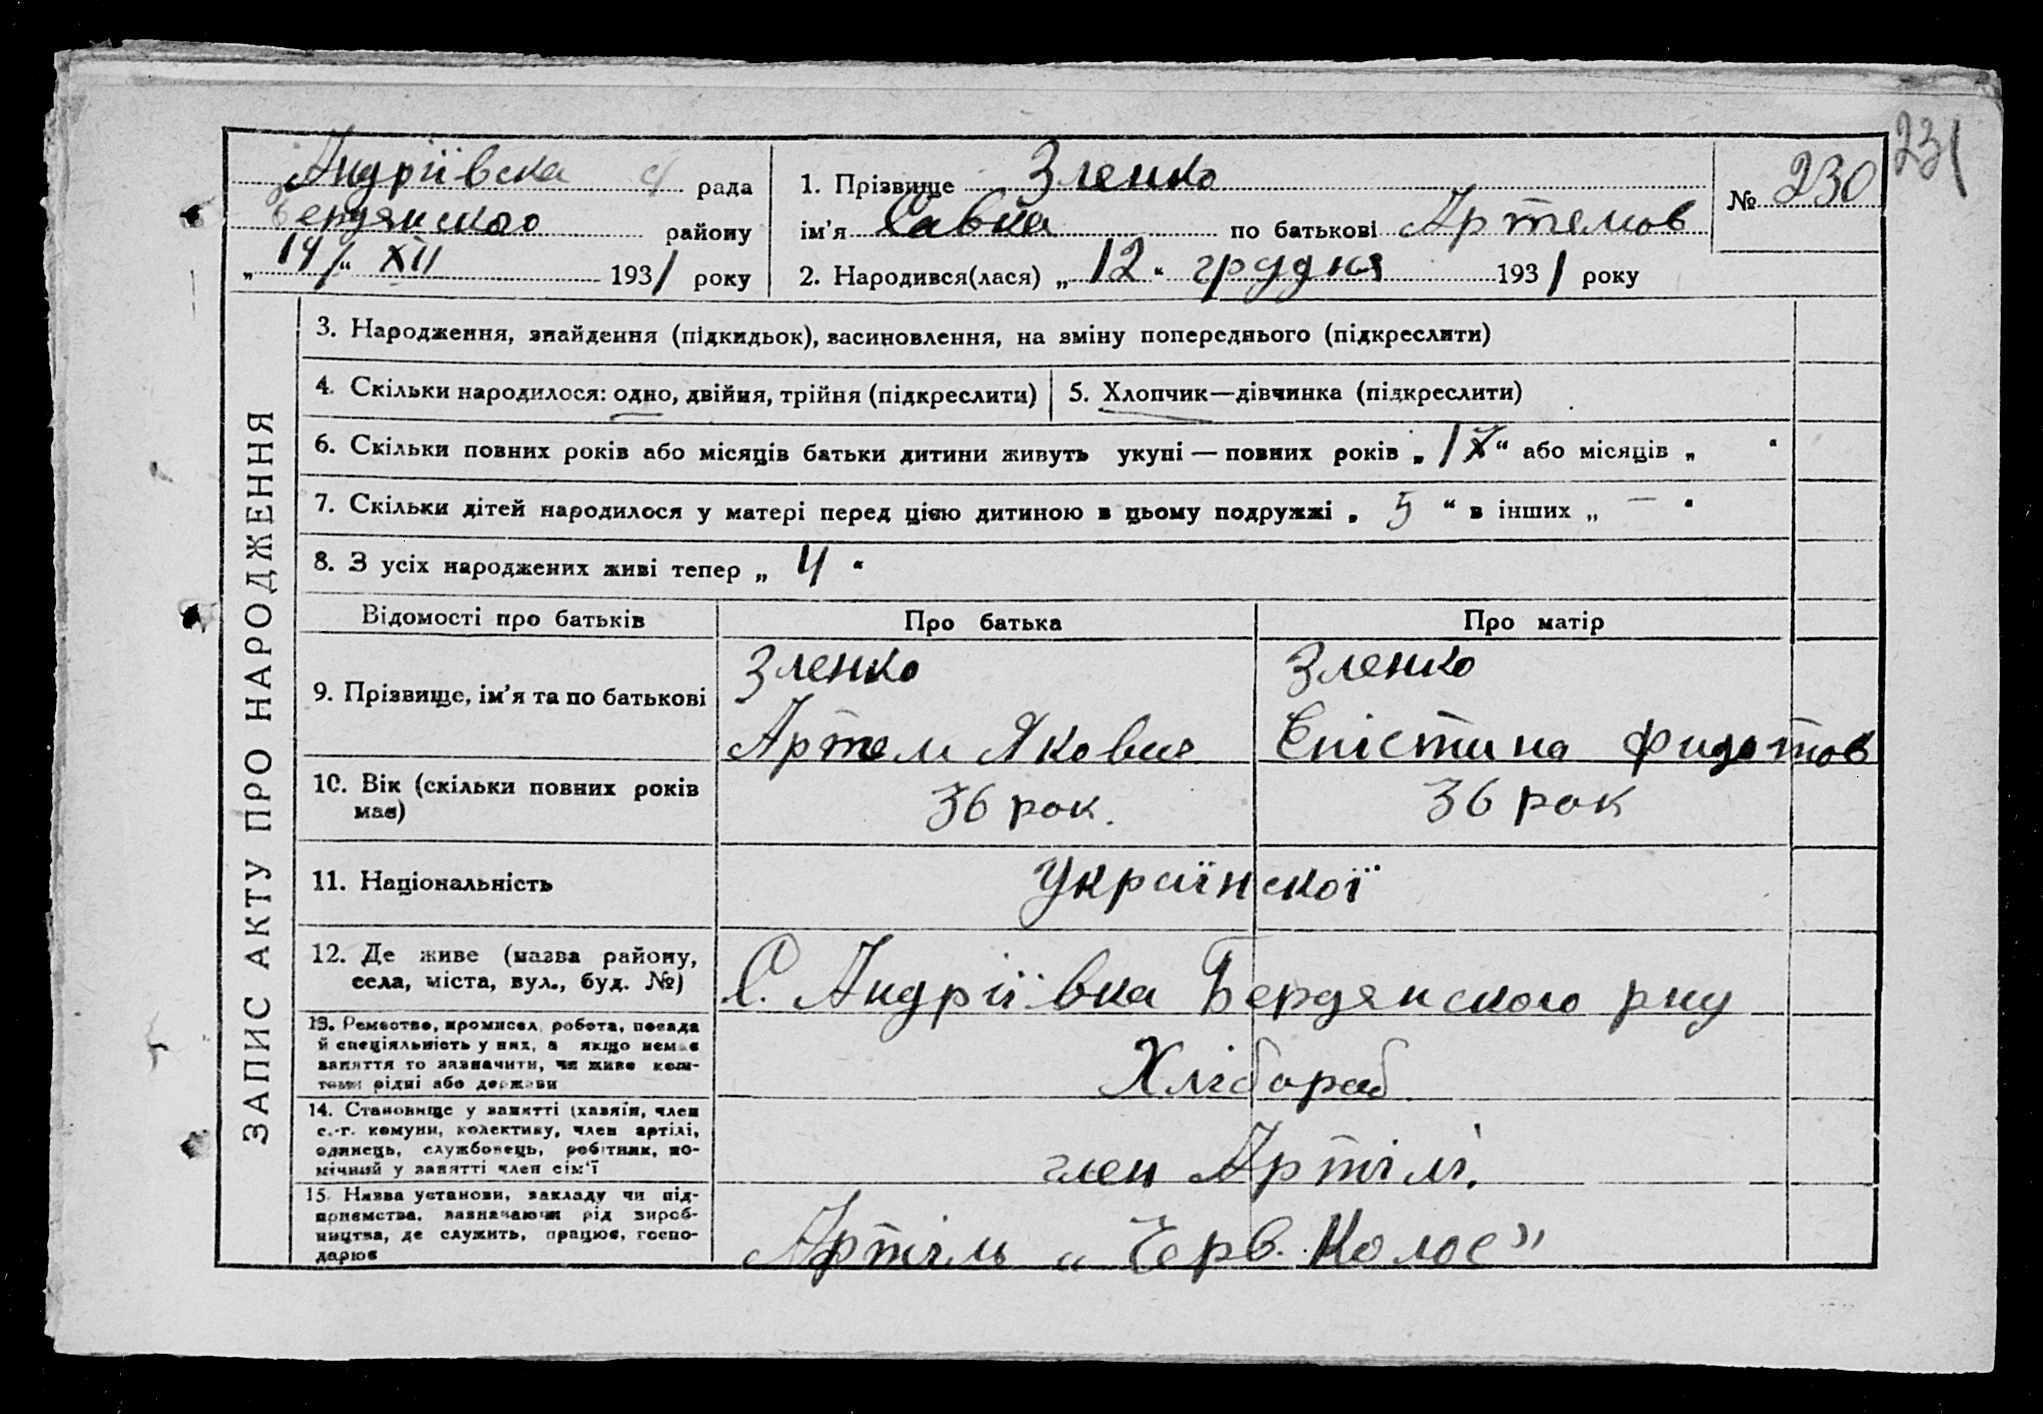 231
Андріївска с/ рада
Бердянского району
„14/“ XII 1931 року
1. Прізвище Зленко
ім'я Савва по батькові Артемов
2. Народився(лася) „12“ грудня 1931 року
№ 230
ЗАПИС АКТУ ПРО НАРОДЖЕННЯ
3. Народження, знайдення (підкидьок), васиновлення, на зміну попереднього (підкреслити)
4. Скільки народилося: одно, двійня, трійня (підкреслити)
5. Хлопчик—дівчинка (підкреслити)
6. Скільки повних років або місяців батьки дитини живуть укупі — повних років „17“ або місяців „ “
7. Скільки дітей народилося у матері перед цією дитиною в цьому подружжі „ 5 “ в інших „ — “
8. З усіх народжених живі тепер „ 4 “
Відомості про батьків
Про батька
Про матір
9. Прізвище, ім'я та по батькові
Зленко
Артем Яковие
Зленко
Епістина Федотов
10. Вік (скільки повних років
має)
36 рок.
36 рок
11. Національність
Українскої
12. Де живе (назва району,
села, міста, вул., буд. №)
С. Андріївка Бердянского рну
13. Ремество, промисел, робота, посада
й спеціяльність у них, а якщо немає
заняття то зазначити, чи живе кош-
тами рідні або держави
Хлібороб
14. Становище у занятті (хазяїн, член
с.-г. комуни, колективу, член артілі,
одинець, службовець, робітник, по-
мічний у занятті член сім'ї
член Артілі.
15. Назва установи, закладу чи під-
приємства, зазначаючи рід вироб-
ництва, де служить, працює, госпо-
дарює
Артіль „Черв. Колос"